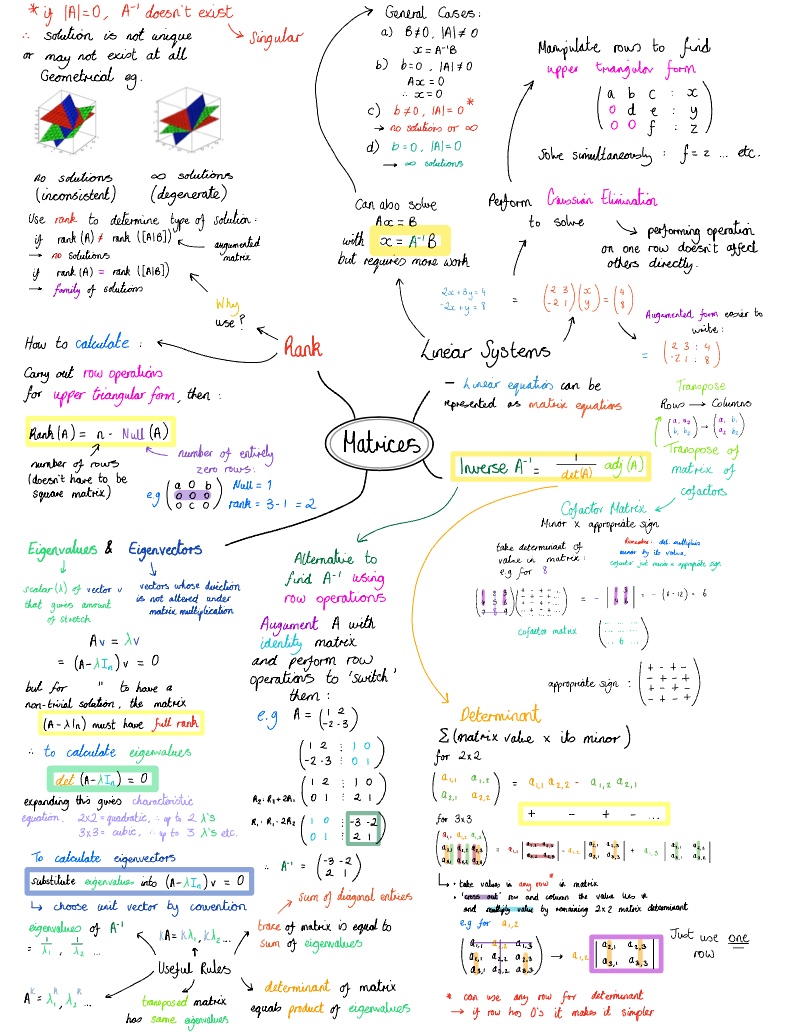 * if |A|=0, A⁻¹ doesn't exist
∴ solution is not unique
→ Singular
or may not exist at all
Geometrical eg.
no solutions
(inconsistent)
∞ solutions
(degenerate)
Use rank to determine type of solution:
if rank (A) ≠ rank ([A|B])
→ no solutions
augmented
matrix
if rank (A) = rank ([A|B])
→ family of solutions
Why
use?
Rank
How to calculate :
Carry out row operations
for upper triangular form, then :
Rank (A) = n - Null (A)
number of rows
(doesn't have to be
square matrix)
number of entirely
zero rows:
e.g
a 0 b
0 0 0
0 c 0
Null = 1
rank = 3 - 1 = 2
General Cases:
a) B≠0, |A|≠0
x = A⁻¹B
b) b=0, |A|≠0
Ax = 0
∴ x = 0
c) b≠0, |A|=0 *
→ no solutions or ∞
d) b=0, |A|=0
→ ∞ solutions
Can also solve
Ax = B
with x = A⁻¹B
but requires more work
Manipulate rows to find
upper triangular form
a b c : x
0 d e : y
0 0 f : z
Solve simultaneously : f = z ... etc.
Perform Gaussian Elimination
to solve
→ performing operation
on one row doesn't affect
others directly.
2x+3y=4
-2x+y=8
=
(2 3) (x) = (4)
(-2 1) (y) (8)
Augmented form easier to
write:
= (2 3 : 4)
(-2 1 : 8)
Linear Systems
- Linear equation can be
represented as matrix equations
Matrices
Inverse A⁻¹ = 1/det(A) adj(A)
Transpose
Rows → Columns
(a₁ a₂) → (a₁ b₁)
(b₁ b₂) (a₂ b₂)
Transpose of
matrix of
cofactors
Cofactor Matrix
Minor x appropriate sign
take determinant of
value in matrix:
e.g for 8
Remember: det. multiplies
minor by its value,
cofactor just minor x appropriate sign
= - = - (6-12) = 6
cofactor matrix
... 6 ...
appropriate sign :
+ - + -
- + - +
+ - + -
- + - +
Eigenvalues & Eigenvectors
scalar (λ) of vector v
that gives amount
of stretch
vectors whose direction
is not altered under
matrix multiplication
Av = λv
= (A-λIₙ)v = 0
but for " to have a
non-trivial solution, the matrix
(A-λIₙ) must have full rank
∴ to calculate eigenvalues
det (A-λIₙ) = 0
expanding this gives characteristic
equation. 2x2 = quadratic, ∴ up to 2 λ's
3x3 = cubic, ∴ up to 3 λ's etc.
To calculate eigenvectors
substitute eigenvalues into (A-λIₙ)v = 0
↳ choose unit vector by convention
eigenvalues of A⁻¹
= 1/λ₁, 1/λ₂ ...
kA = kλ₁, kλ₂...
Useful Rules
Aᵏ = λ₁ᵏ, λ₂ᵏ ...
transposed matrix
has same eigenvalues
sum of diagonal entries
trace of matrix is equal to
sum of eigenvalues
determinant of matrix
equals product of eigenvalues
Alternative to
find A⁻¹ using
row operations
Augument A with
identity matrix
and perform row
operations to 'switch'
them :
e.g A = (1 2)
(-2 -3)
1 2 : 1 0
-2 -3 : 0 1
1 2 : 1 0
R₂: R₂+2R₁ 0 1 : 2 1
R₁: R₁-2R₂ 1 0 : -3 -2
0 1 : 2 1
∴ A⁻¹ = (-3 -2)
(2 1)
Determinant
Σ (matrix value x its minor)
for 2x2
(a₁,₁ a₁,₂) = a₁,₁ a₂,₂ - a₁,₂ a₂,₁
(a₂,₁ a₂,₂)
+ - + - ...
for 3x3
↳ • take values in any row * in matrix
• 'cross out' row and column the value lies *
and multiply value by remaining 2x2 matrix determinant
e.g for a₁,₂
a₁,₁ a₁,₂ a₁,₃
a₂,₁ a₂,₂ a₂,₃
a₃,₁ a₃,₂ a₃,₃
→ a₁,₂ | a₂,₁ a₂,₃ |
| a₃,₁ a₃,₃ |
Just use one
row
* can use any row for determinant
→ if row has 0's it makes it simpler